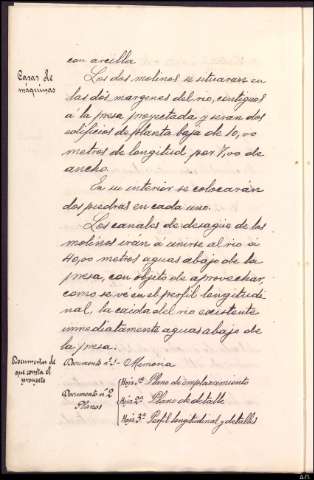 con arcilla
Casas de
máquinas
Los dos molinos se situaran en
las dos margenes del rio, contiguos
á la presa proyectada y seran dos
edificios de planta baja de 10,00
metros de longitud por 7,00 de
ancho.
En su interior se colocarán
dos piedras en cada uno.
Los canales de desagüe de los
molinos irán á unirse al rio á
40,00 metros aguas abajo de la
presa, con objeto de aprovechar,
como se vé en el perfil longitudi-
nal, la caida del rio existente
inmediatamente aguas abajo de
la presa.
Documentos de
que consta el
proyecto
Documento nº 1 - Memoria
Documento nº 2
Planos
Hoja 1ª Plano de emplazamiento
Hoja 2ª Plano de detalle
Hoja 3ª Perfil longitudinal y detalles